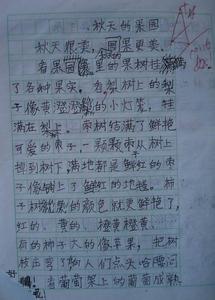 秋天的果园
秋天很美，果园更美。
看果园里的果树挂满
了各种果实。看梨树上的梨
子像黄澄澄的小灯笼，挂
满在梨上。枣树结满了鲜艳
可爱的枣子，一颗颗枣从树上
掉到树下，满地都是鲜红的枣
子像铺上了鲜红的地毯。柿
子树的颜色就更鲜艳了，
红的、黄的、橙黄橙黄
有的柿子大的像苹果，把树
枝压弯了和人们点头哈腰问
好。看葡萄架上的葡萄成熟